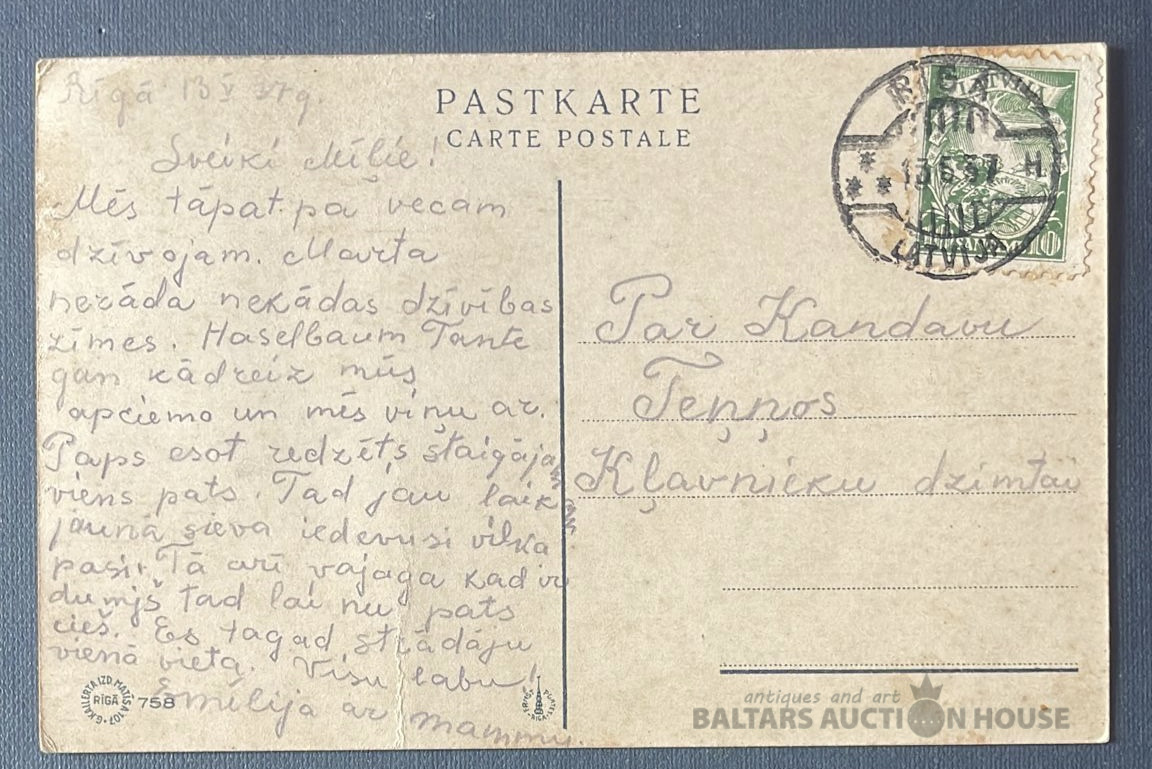 Rīgā 13 V
PASTKARTE
CARTE POSTALE
Sveiki Mīļie!
Mēs tāpat pa vecam
dzīvojam. Marta
nerāda nekādas dzīvības
zīmes. Haselbaum Tante
gan kādreiz mūs
apciemo un mēs viņu ar.
Paps esot redzēts staigāja
viens pats. Tad jau laik
jaunā sieva iedevusi vilka
pasi. Tā arī vajaga kad ir
dumjš tad lai nu pats
cieš. Es tagad strādāju
vienā vietā. Visu labu!
Emīlija ar mammu.
RĪGA
13.5.37 H
LATVIJA
LATVIJA
10
Par Kandavu
Teņņos
Kļavnieku dzimtai
E. KALLERTA IZD. MATĪSA 107
RĪGĀ
758
antiques and art
BALTARS AUCTION HOUSE